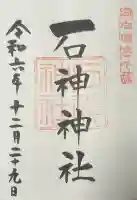 石神神社
令和六年十二月二十九日